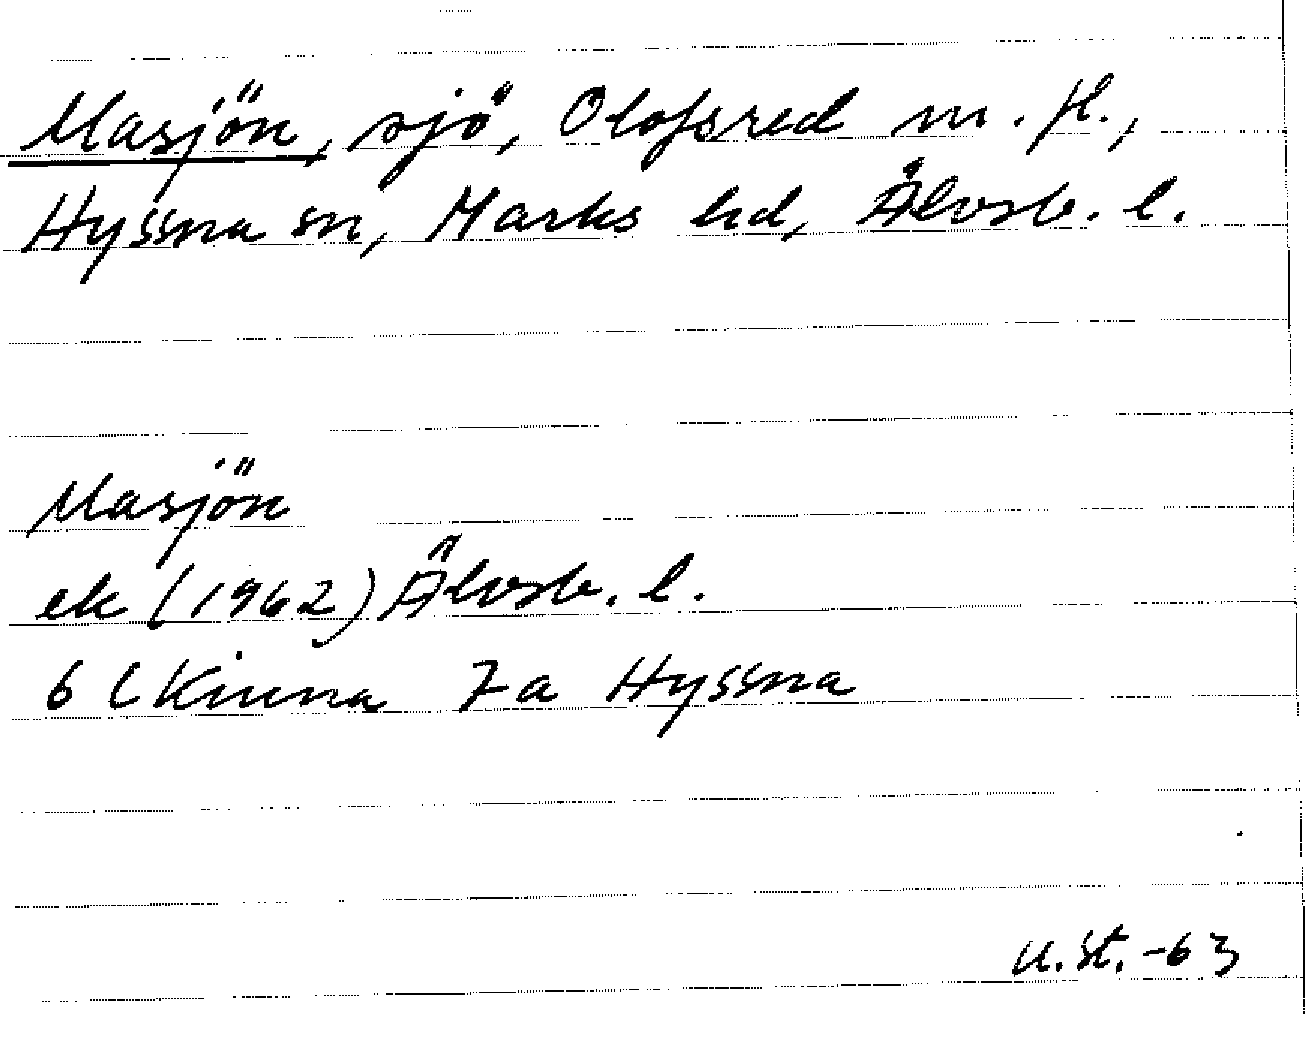 Masjön, sjö, Olofsred m. fl.,
Hyssna sn, Marks hd, Älvsb. l.
Masjön
ek (1962) Älvsb. l.
6 C Kinna 7a Hyssna
U.St. -63